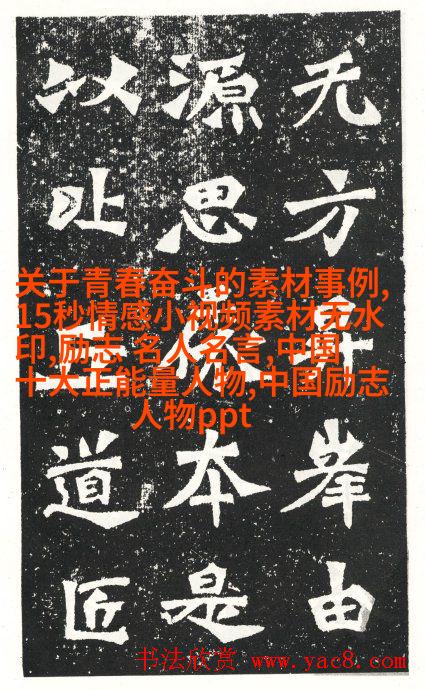 无方峯由
源思本是
以道匠
关于青春奋斗的素材事例,
15秒情感小视频素材无水
印,励志 名人名言,中国
十大正能量人物,中国励志
人物ppt
书法欣赏 www.yac8.com